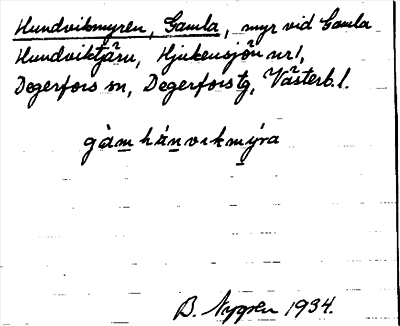 Hundvikmyren, Gamla, myr vid Gamla
Hundviktjärn, Hjukensjön nr 1,
Degerfors sn, Degerfors tg, Västerb. l.
gàm hánvıkmýra
B. Nygren 1934.